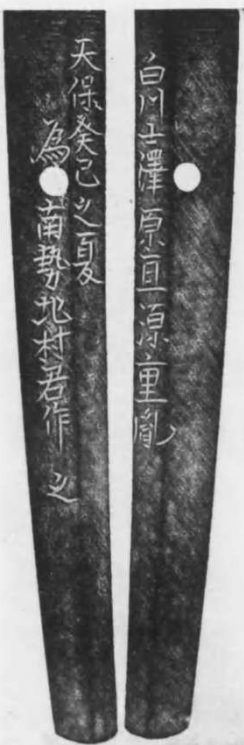 白川士澤原直源重胤
天保癸巳之夏
為南勢地村君作之